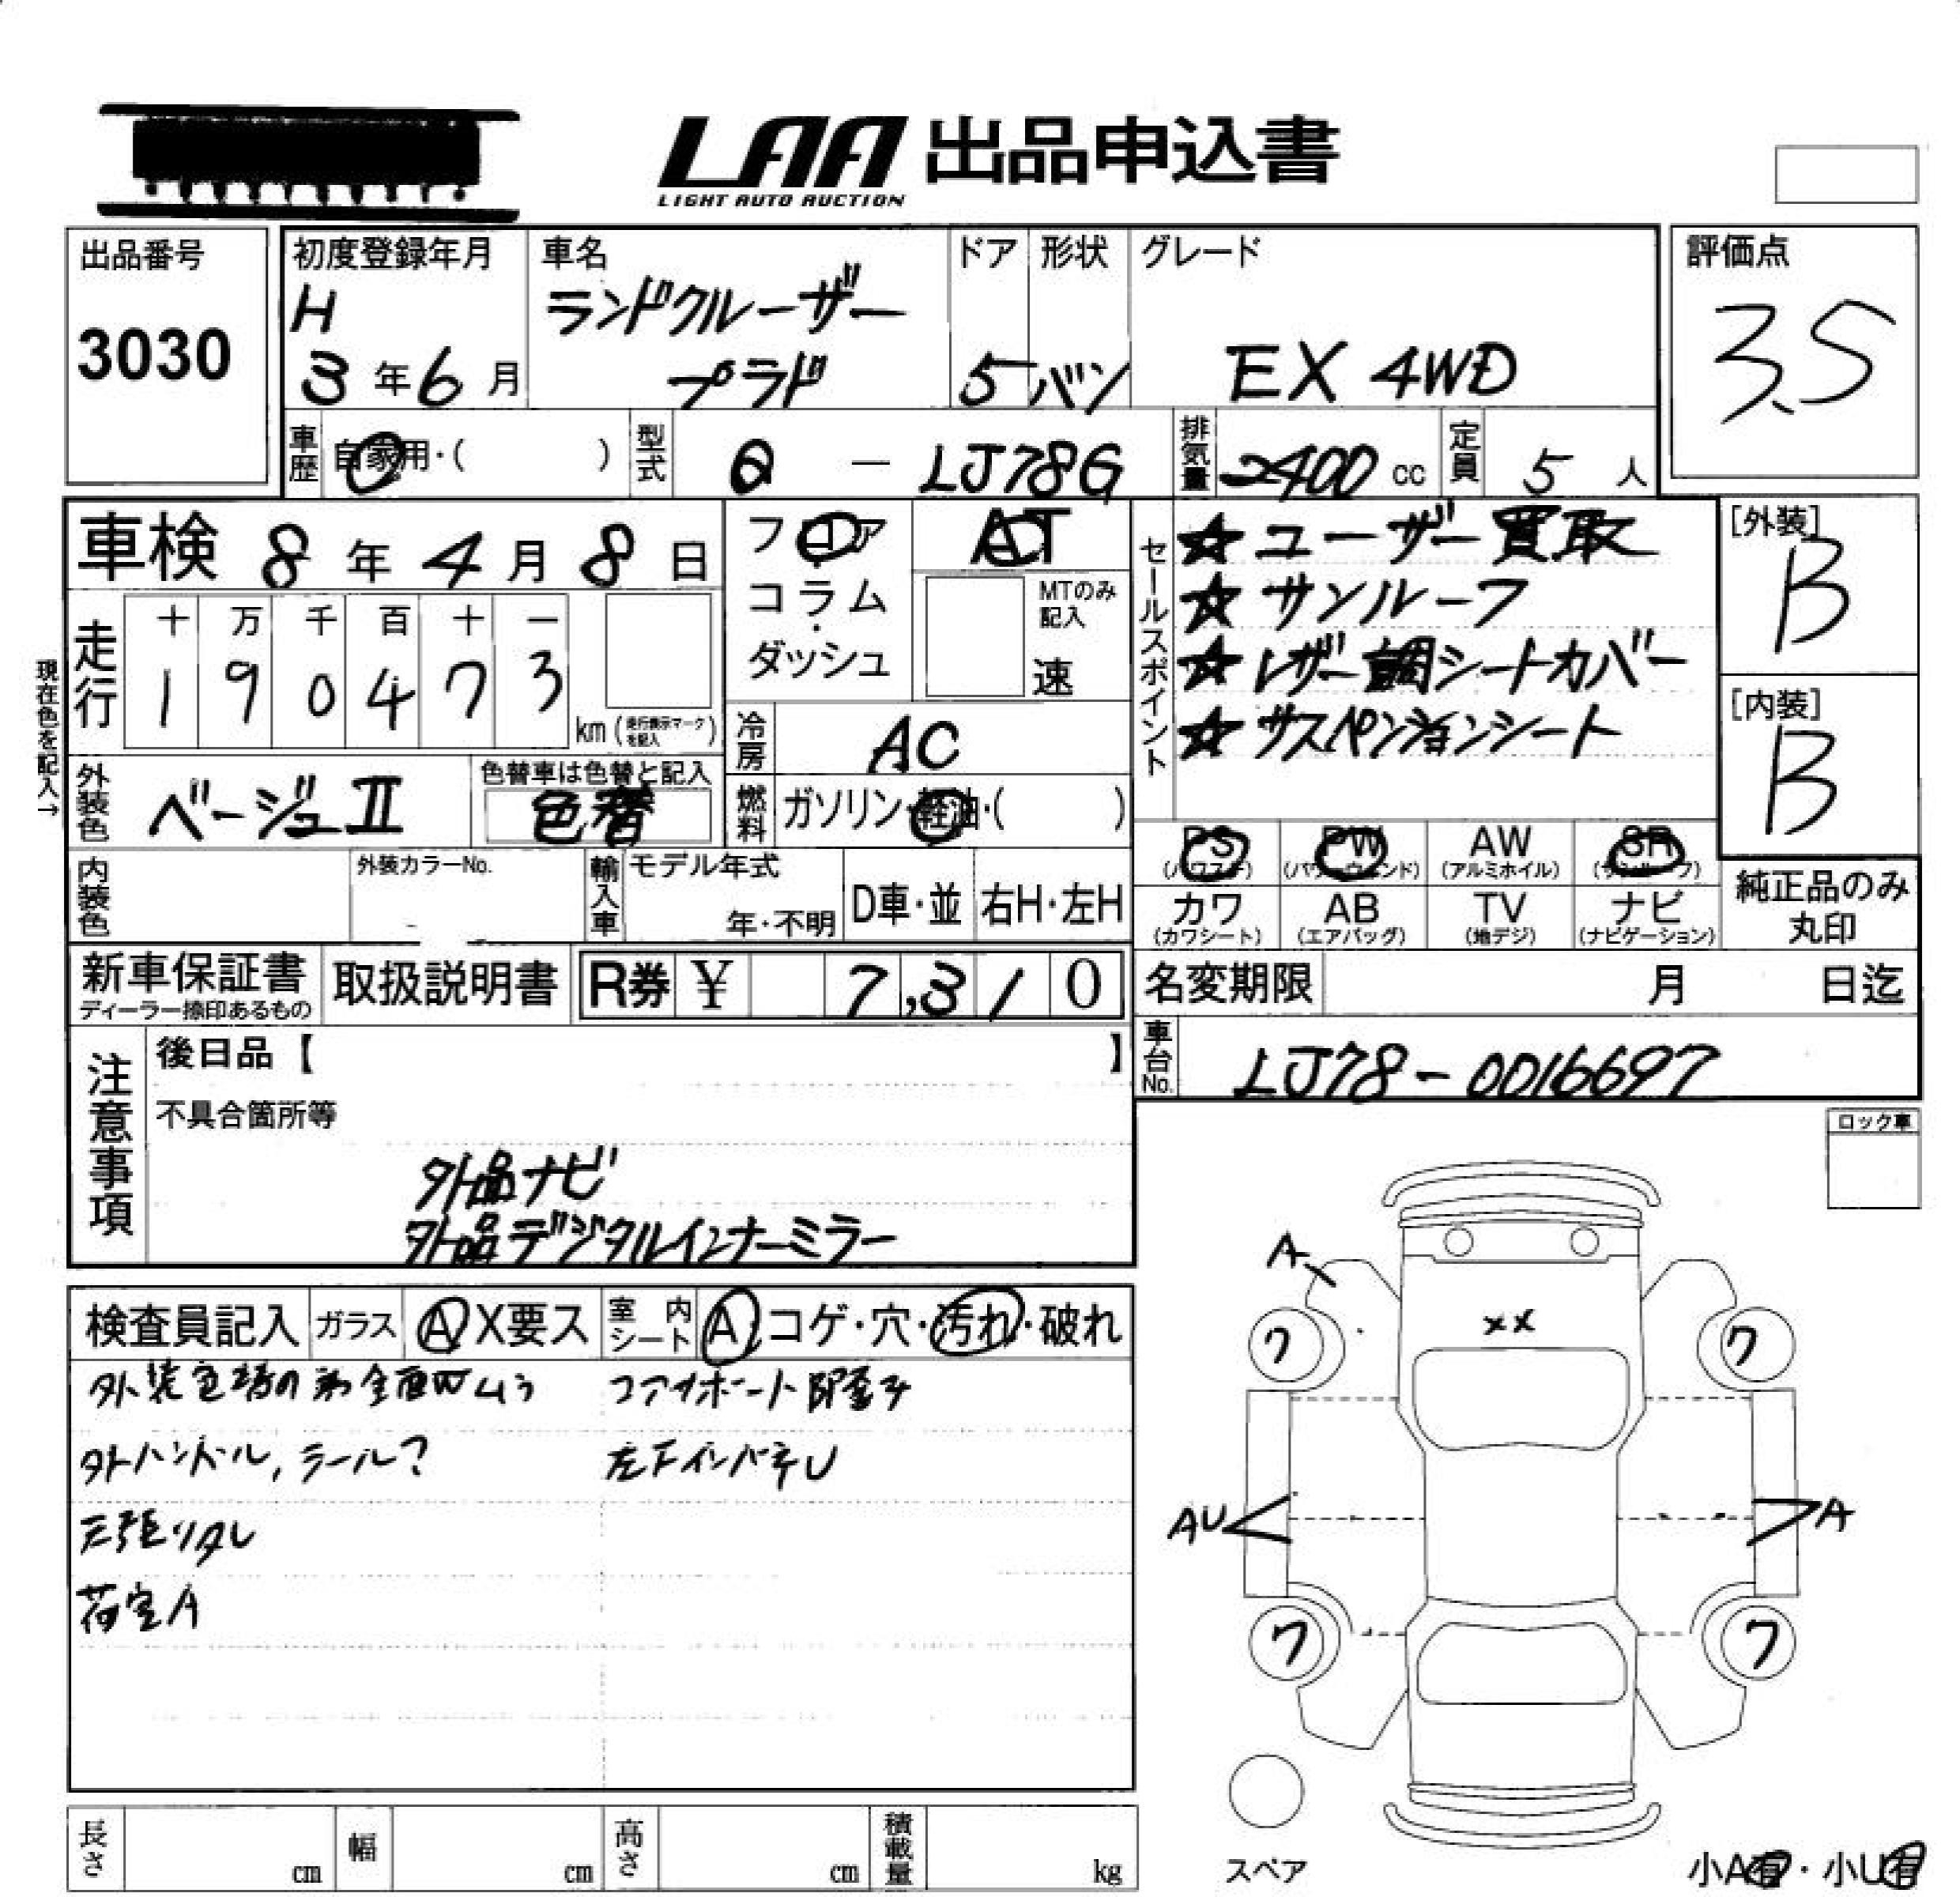 LAA 出品申込書
LIGHT AUTO AUCTION
出品番号
3030
初度登録年月
H
3年6月
車名
ランドクルーザー
プラド
ドア
5
形状
バン
グレード
EX 4WD
評価点
3.5
車歴
自家用・( )
型式
Q — LJ78G
排気量
2400 cc
定員
5 人
車検 8年4月8日
フロア
コラム
ダッシュ
AT
MTのみ
記入
速
セールスポイント
☆ ユーザー買取
☆ サンルーフ
☆ レザー調シートカバー
☆ サスペンションシート
[外装]
B
[内装]
B
現在色を記入→
走行
十 万 千 百 十 一
1 9 0 4 7 3
km(走行表示マークを記入)
冷房
AC
外装色
ベージュII
色替車は色替と記入
色替
燃料
ガソリン・軽油・( )
PS
(パワステ)
PW
(パワーウィンド)
AW
(アルミホイル)
SR
(サンルーフ)
カワ
(カワシート)
AB
(エアバッグ)
TV
(地デジ)
ナビ
(ナビゲーション)
純正品のみ
丸印
内装色
外装カラーNo.
輸入車
モデル年式
年・不明
D車・並
右H・左H
新車保証書
ディーラー捺印あるもの
取扱説明書
R券 ¥ 7,310
名変期限 月 日迄
車台No.
LJ78-0016697
注意事項
後日品【 】
不具合箇所等
外品ナビ
外品デジタルインナーミラー
ロック車
検査員記入
ガラス
A X要ス
室内シート
A・コゲ・穴・汚れ・破れ
外装色替の為全面W
外ハンドル,
左下インパネU
天張りタレ
荷室A
A
XX
ワ
ワ
AU
A
ワ
ワ
スペア
小A有・小U有
長さ
cm
幅
cm
高さ
cm
積載量
kg